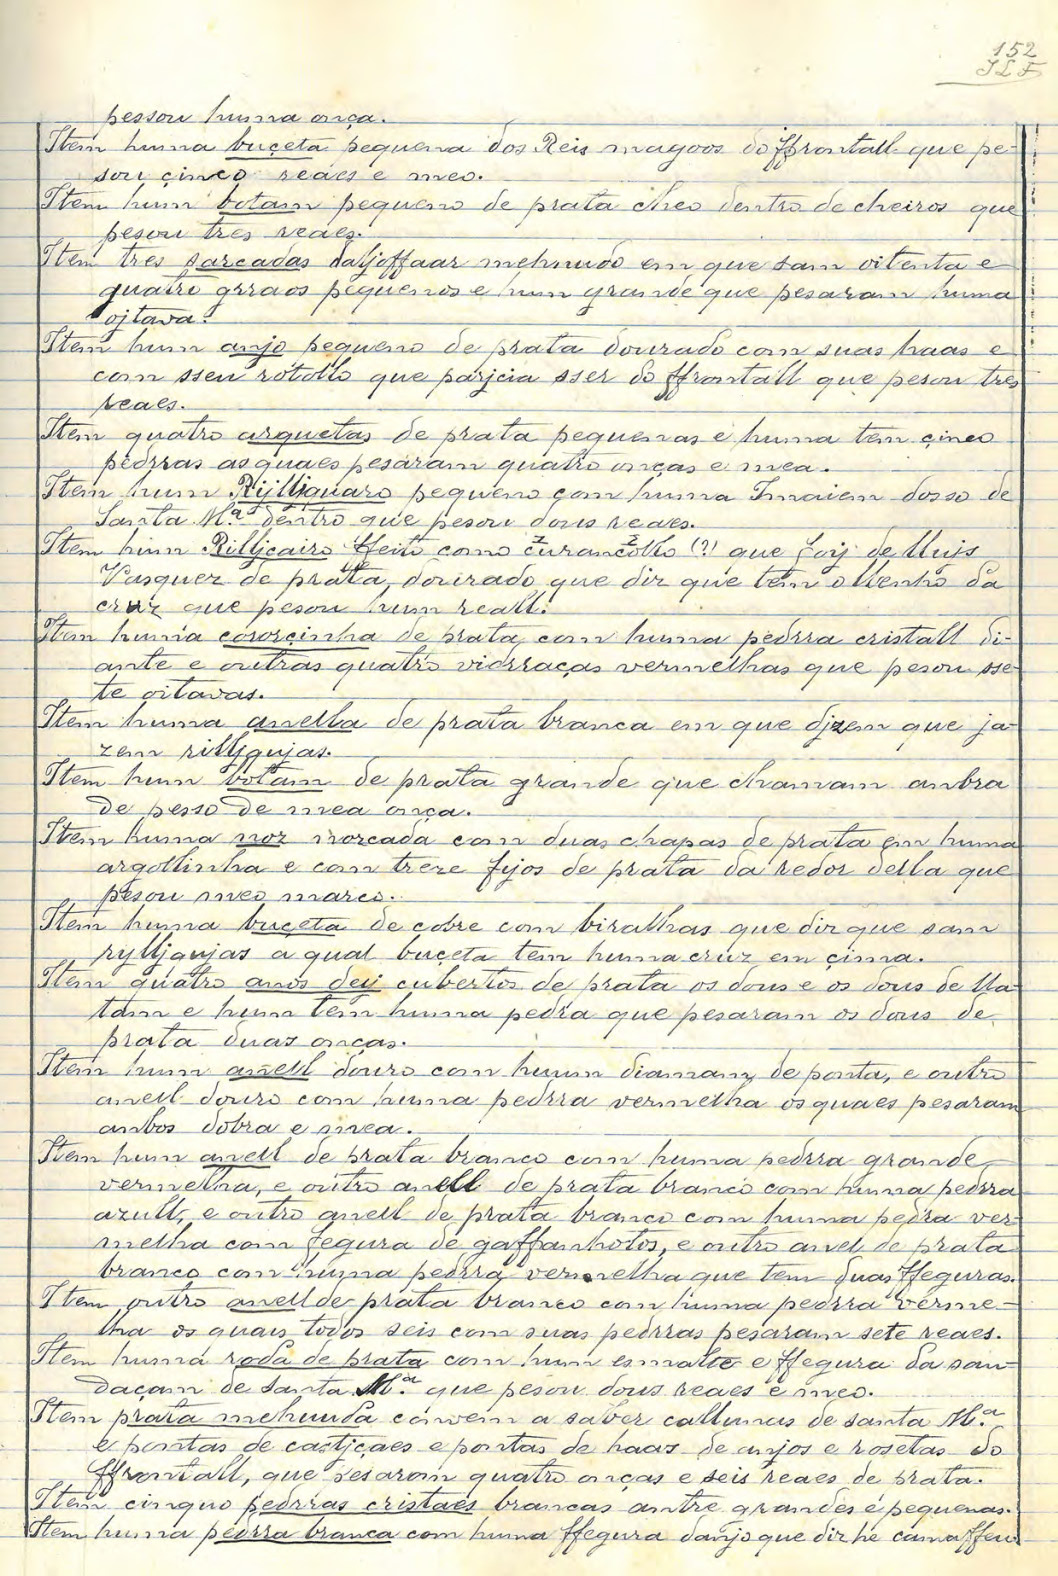 152
JLF
pessou huma onça.
Item huma buçeta pequena dos Reis magoos do ffrontall que pe-
sou çinco reaes e meo.
Item hum botam pequeno de prata cheo dentro de cheiros que
pesou tres reaes.
Item tres sarcadas daljoffaar mehnudo em que sam oitenta e
quatro grraos pequenos e hum grande que pesaram huma
ojtava.
Item hum anjo pequeno de prata dourado com suas haas e
com sseu rotollo que parjcia sser do ffrontall que pesou tres
reaes.
Item quatro arquetas de prata pequenas e huma tem çinco
pedrras as quaes pesaram quatro onças e mea.
Item hum Rijlliquairo pequeno com huma Imaiem dosso de
Santa M.ª dentro que pesou dous reaes.
Item hum Rilljcairo ffeito como curancolho (?) que foij de lluis
Vasquez de prata, dourado que diz que tem o llenho da
cruz que pesou hum reall.
Item huma cororçinha de prata com huma pedrra cristall di-
ante e outras quatro vidrraças vermelhas que pesou sse-
te oitavas.
Item huma anella de prata branca em que djzem que ja-
zem rilljqujas.
Item hum botam de prata grande que chamam anbra
de pesso de mea onça.
Item huma noz nozcada com duas chapas de prata em huma
argollinha e com treze fijos de prata da redor della que
pesou meo marco.
Item huma buçeta de cobre com biralhas que diz que sam
rylljqujas a qual buçeta tem huma cruz em çima.
Item quatro anos dei cubertos de prata os dous e os dous de lla-
tam e hum tem huma pedra que pesaram os dous de
prata duas onças.
Item hum anell douro com huum diamam de ponta, e outro
anell douro com huma pedrra vermelha os quaes pesaram
anbos dobra e mea.
Item hum anell de prata branco com huma pedrra grande
vermelha, e outro anell de prata branco com huma pedrra
azull, e outro anell de prata branco com huma pedra ver-
melha com fegura de gaffanhotos, e outro anel de prata
branco com huma pedrra vermelha que tem duas ffeguras.
Item outro anell de prata branco com huma pedrra verme-
lha os quais todos seis com suas pedrras pesaram sete reaes.
Item huma roda de prata com hum esmalte e ffegura da sau-
daçam de Santa M.ª que pesou dous reaes e meo.
Item prata mehuuda convem a saber collunas de santa M.ª
e pontas de castjçaes e pontas de haas de anjos e rosetas do
ffrontall, que pesarom quatro onças e seis reaes de prata.
Item cinquo pedrras cristaes brancas antre grandes e pequenas.
Item huma pedrra branca com huma ffegura danjo que diz he camaffeu